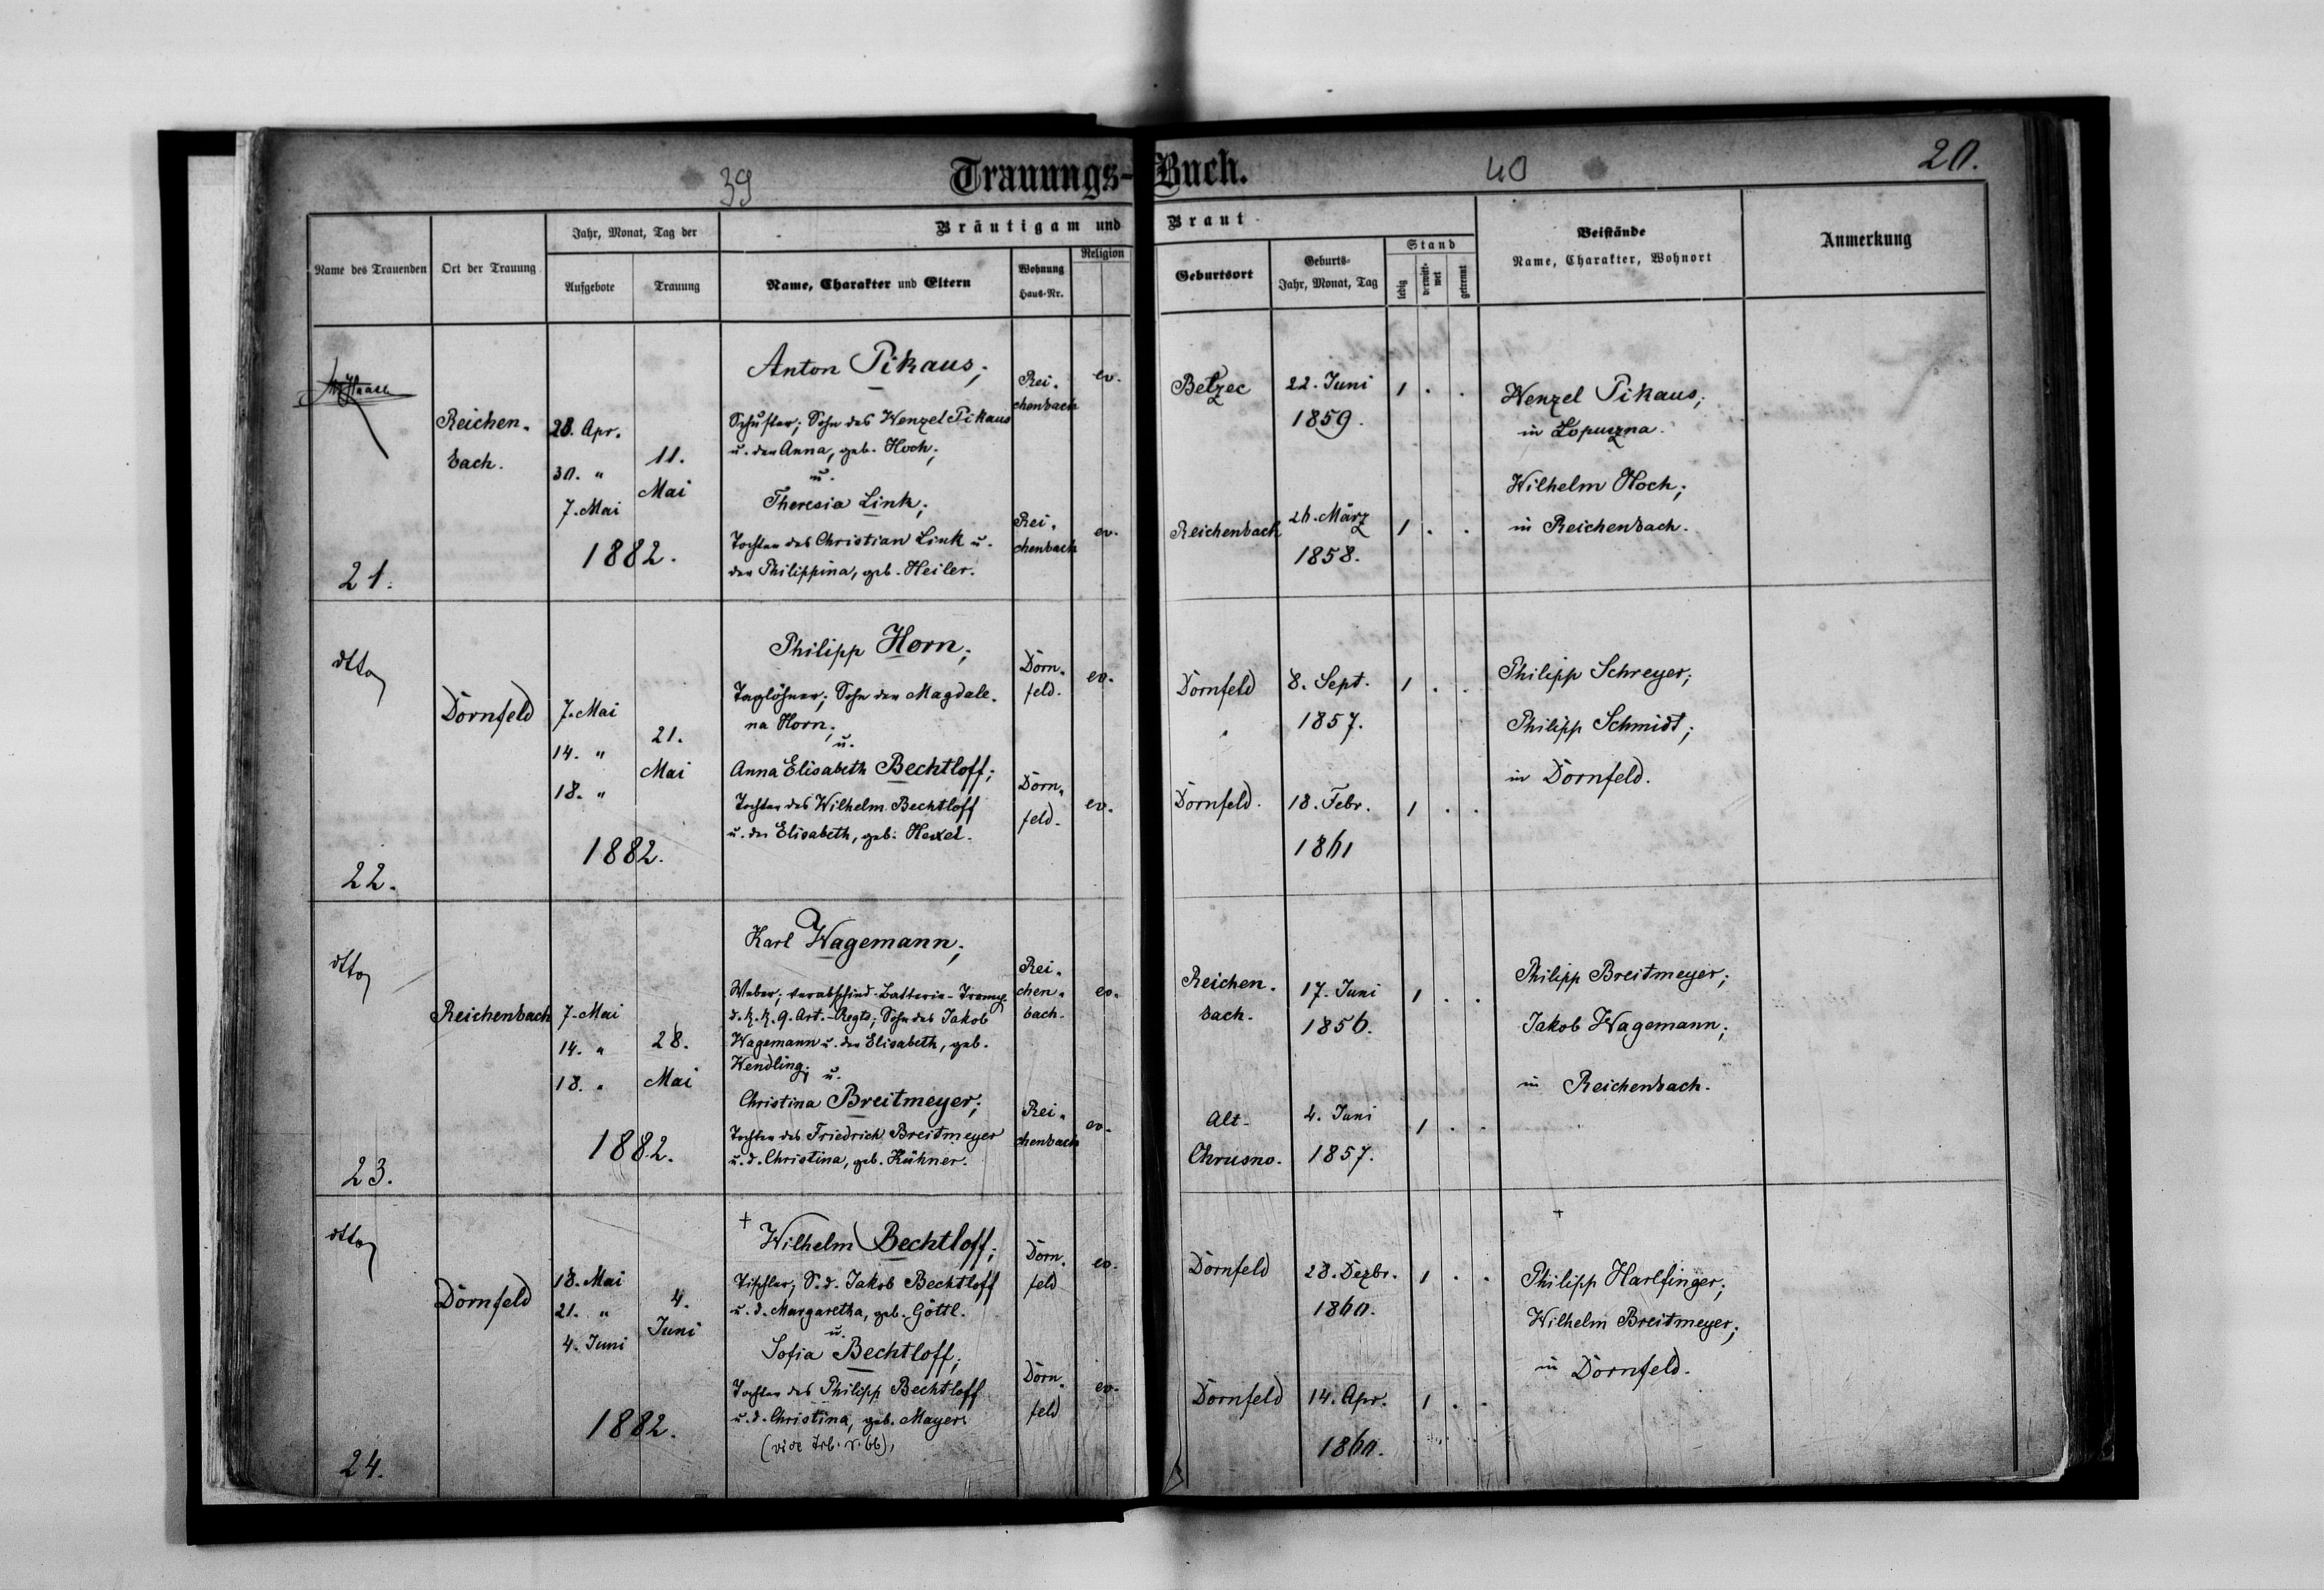 39
Trauungs-Buch.
40
20.
Name des Trauenden
Ort der Trauung
Jahr, Monat, Tag der
Aufgebote
Trauung
Bräutigam und Braut
Name, Charakter und Eltern
Wohnung
Haus-Nr.
Religion
Geburtsort
Geburts-
Jahr, Monat, Tag
Stand
ledig
verwitt-
wet
getrennt
Beistände
Name, Charakter, Wohnort
Anmerkung
21.
Reichen-
bach.
28. Apr.
30. "
7. Mai
11.
Mai
1882.
Anton Pikaus;
Schuster; Sohn des Wenzel Pikaus
u. der Anna, geb. Hoch;
u.
Theresia Link;
Tochter des Christian Link u.
der Philippina, geb. Heiler.
Rei-
chenbach
ev.
Rei-
chenbach
ev.
Bełzec
22. Juni
1859.
1 . .
Reichenbach
26. März
1858.
1 . .
Wenzel Pikaus;
in Łopuszna.
Wilhelm Hoch;
in Reichenbach.
dtto
22.
Dornfeld
7. Mai
14. "
18. "
21.
Mai
1882.
Philipp Horn;
Taglöhner; Sohn der Magdale-
na Horn;
u.
Anna Elisabeth Bechtloff;
Tochter des Wilhelm Bechtloff
u. der Elisabeth, geb. Hexel.
Dorn-
feld.
ev.
Dorn-
feld.
ev.
Dornfeld
8. Sept.
1857.
1 . .
Dornfeld.
18. Febr.
1861
1 . .
Philipp Schreyer;
Philipp Schmidt;
in Dornfeld.
dtto
23.
Reichenbach
7. Mai
14. "
18. "
28.
Mai
1882.
Karl Wagemann;
Weber; verabschied. Batterie-Tromp.
d. k. k. 9. Art.-Regts; Sohn des Jakob
Wagemann u. der Elisabeth, geb.
Wendling; u.
Christina Breitmeyer;
Tochter des Friedrich Breitmeyer
u. d. Christina, geb. Kühner.
Rei-
chen-
bach.
ev.
Rei-
chenbach
ev.
Reichen-
bach.
17. Juni
1856.
1 . .
Alt-
Chrusno.
4. Juni
1857.
1 . .
Philipp Breitmeyer;
Jakob Wagemann;
in Reichenbach.
dtto
24.
Dornfeld
18. Mai
21. "
4. Juni
4.
Juni
1882.
+ Wilhelm Bechtloff;
Tischler; S. d. Jakob Bechtloff
u. d. Margaretha, geb. Göttl.
u.
Sofia Bechtloff;
Tochter des Philipp Bechtloff
u. d. Christina, geb. Mayer.
(vide
Dorn-
feld
ev.
Dorn-
feld
ev.
Dornfeld
28. Dezbr.
1860.
1 . .
Dornfeld
14. Apr.
1860.
1 . .
+
Philipp Harlfinger;
Wilhelm Breitmeyer;
in Dornfeld.